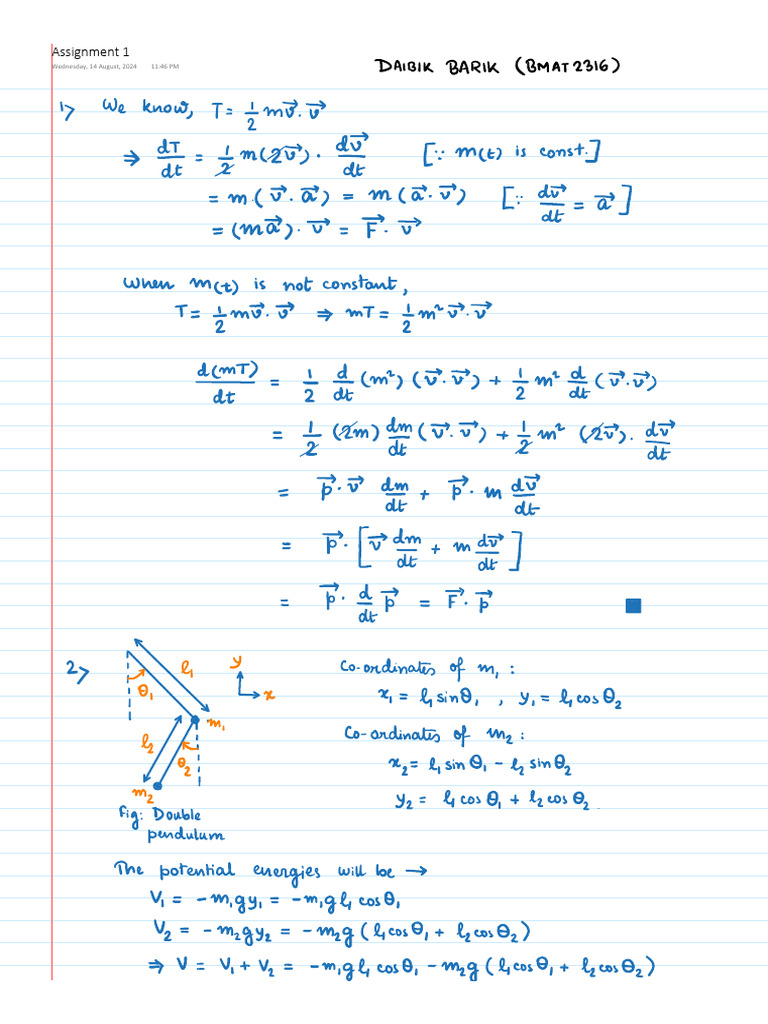 Assignment 1
Wednesday, 14 August, 2024 11:46 PM
DAIBIK BARIK (BMAT2316)
1> We know, T = 1/2 m v⃗ · v⃗
⇒ dT/dt = 1/2 m (2v⃗) · dv⃗/dt [∵ m(t) is const.]
= m · (v⃗ · a⃗) = m (a⃗ · v⃗) [∵ dv⃗/dt = a⃗]
= (m a⃗) · v⃗ = F⃗ · v⃗
When m(t) is not constant,
T = 1/2 m v⃗ · v⃗ ⇒ mT = 1/2 m² v⃗ · v⃗
d(mT)/dt = 1/2 d/dt (m²) (v⃗ · v⃗) + 1/2 m² d/dt (v⃗ · v⃗)
= 1/2 (2m) dm/dt (v⃗ · v⃗) + 1/2 m² (2v⃗) · dv⃗/dt
= p⃗ · v⃗ dm/dt + p⃗ · m dv⃗/dt
= p⃗ · [v⃗ dm/dt + m dv⃗/dt]
= p⃗ · d/dt p⃗ = F⃗ · p⃗
2>
l₁
θ₁
m₁
l₂
θ₂
m₂
y
x
Fig: Double
pendulum
Co-ordinates of m₁ :
x₁ = l₁ sinθ₁ , y₁ = l₁ cosθ₂
Co-ordinates of m₂ :
x₂ = l₁ sinθ₁ − l₂ sinθ₂
y₂ = l₁ cosθ₁ + l₂ cosθ₂
The potential energies will be →
V₁ = −m₁gy₁ = −m₁g l₁ cosθ₁
V₂ = −m₂gy₂ = −m₂g (l₁ cosθ₁ + l₂ cosθ₂)
⇒ V = V₁ + V₂ = −m₁g l₁ cosθ₁ − m₂g (l₁ cosθ₁ + l₂ cosθ₂)